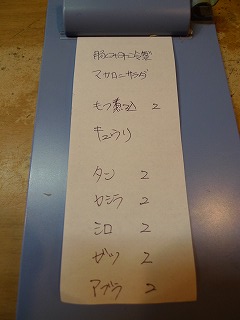 マカロニサラダ
もつ煮込 2
キュウリ
タン 2
カシラ 2
シロ 2
ガツ 2
アブラ 2